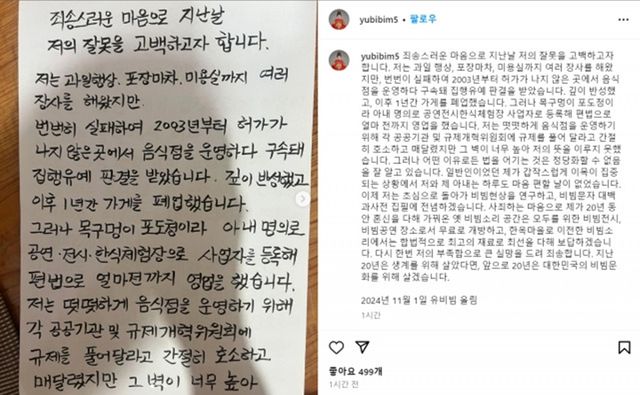 죄송스러운 마음으로 지난날
저의 잘못을 고백하고자 합니다.
저는 과일행상, 포장마차, 미용실까지 여러
장사를 해왔지만,
번번히 실패하여 2003년부터 허가가
나지 않은 곳에서 음식점을 운영하다 구속돼
집행유예 판결을 받았습니다. 깊이 반성했고
이후 1년간 가게를 폐업했습니다.
그러나 목구멍이 포도청이라 아내 명의로
공연·전시·한식체험장으로 사업자를 등록해
편법으로 얼마전까지 영업을 했습니다.
저는 떳떳하게 음식점을 운영하기 위해
각 공공기관 및 규제개혁위원회에
규제를 풀어달라고 간절히 호소하고
매달렸지만 그 벽이 너무 높아
yubibim5 • 팔로우
yubibim5 죄송스러운 마음으로 지난날 저의 잘못을 고백하고자
합니다. 저는 과일 행상, 포장마차, 미용실까지 여러 장사를 해왔
지만, 번번이 실패하여 2003년부터 허가가 나지 않은 곳에서 음식
점을 운영하다 구속돼 집행유예 판결을 받았습니다. 깊이 반성했
고, 이후 1년간 가게를 폐업했습니다. 그러나 목구멍이 포도청이
라 아내 명의로 공연전시한식체험장 사업자로 등록해 편법으로
얼마 전까지 영업을 했습니다. 저는 떳떳하게 음식점을 운영하기
위해 각 공공기관 및 규제개혁위원회에 규제를 풀어 달라고 간절
히 호소하고 매달렸지만 그 벽이 너무 높아 저의 뜻을 이루지 못했
습니다. 그러나 어떤 이유로든 법을 어기는 것은 정당화할 수 없음
을 잘 알고 있습니다. 일반인이었던 제가 갑작스럽게 이목이 집중
되는 상황에서 저와 제 아내는 하루도 마음 편할 날이 없었습니다.
이제 저는 초심으로 돌아가 비빔현상을 연구하고, 비빔문자 대백
과사전 집필에 전념하겠습니다. 사죄하는 마음으로 제가 20년 동
안 혼신을 다해 가꿔온 옛 비빔소리 공간은 모두를 위한 비빔전시,
비빔공연 장소로서 무료로 개방하고, 한옥마을로 이전한 비빔소
리에서는 합법적으로 최고의 재료로 최선을 다해 보답하겠습니
다. 다시 한번 저의 부족함으로 큰 실망을 드려 죄송합니다. 지난
20년은 생계를 위해 살았다면, 앞으로 20년은 대한민국의 비빔문
화를 위해 살겠습니다.
2024년 11월 1일 유비빔 올림
1시간
좋아요 499개
1시간 전